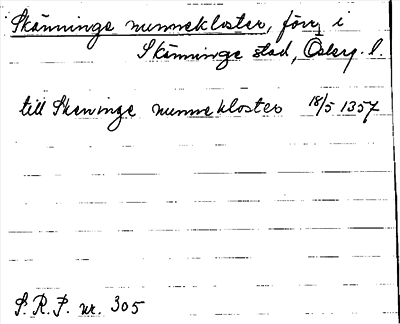 Skännings nunnekloster, förr i
Skänninge stad, Österg. l.
till Skeninge nunnekloster 18/5 1357
S. R. P. nr. 305